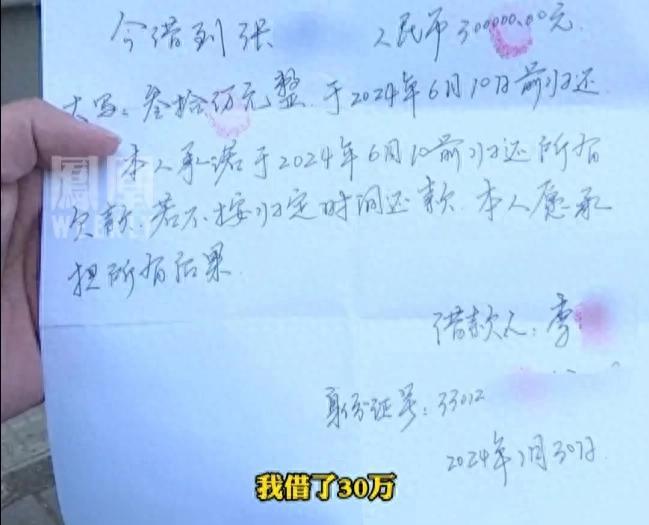 今借到 张 人民币 300000.00元.
大写：叁拾万元整.于2024年6月10日前归还
本人承诺于2024年6月10前归还所有
鳳凰
WEEKLY
欠款.若不按归定时间还款.本人愿承
担所有后果.
借款人：李
身份证号：33012
2024年 月30日
我借了30万